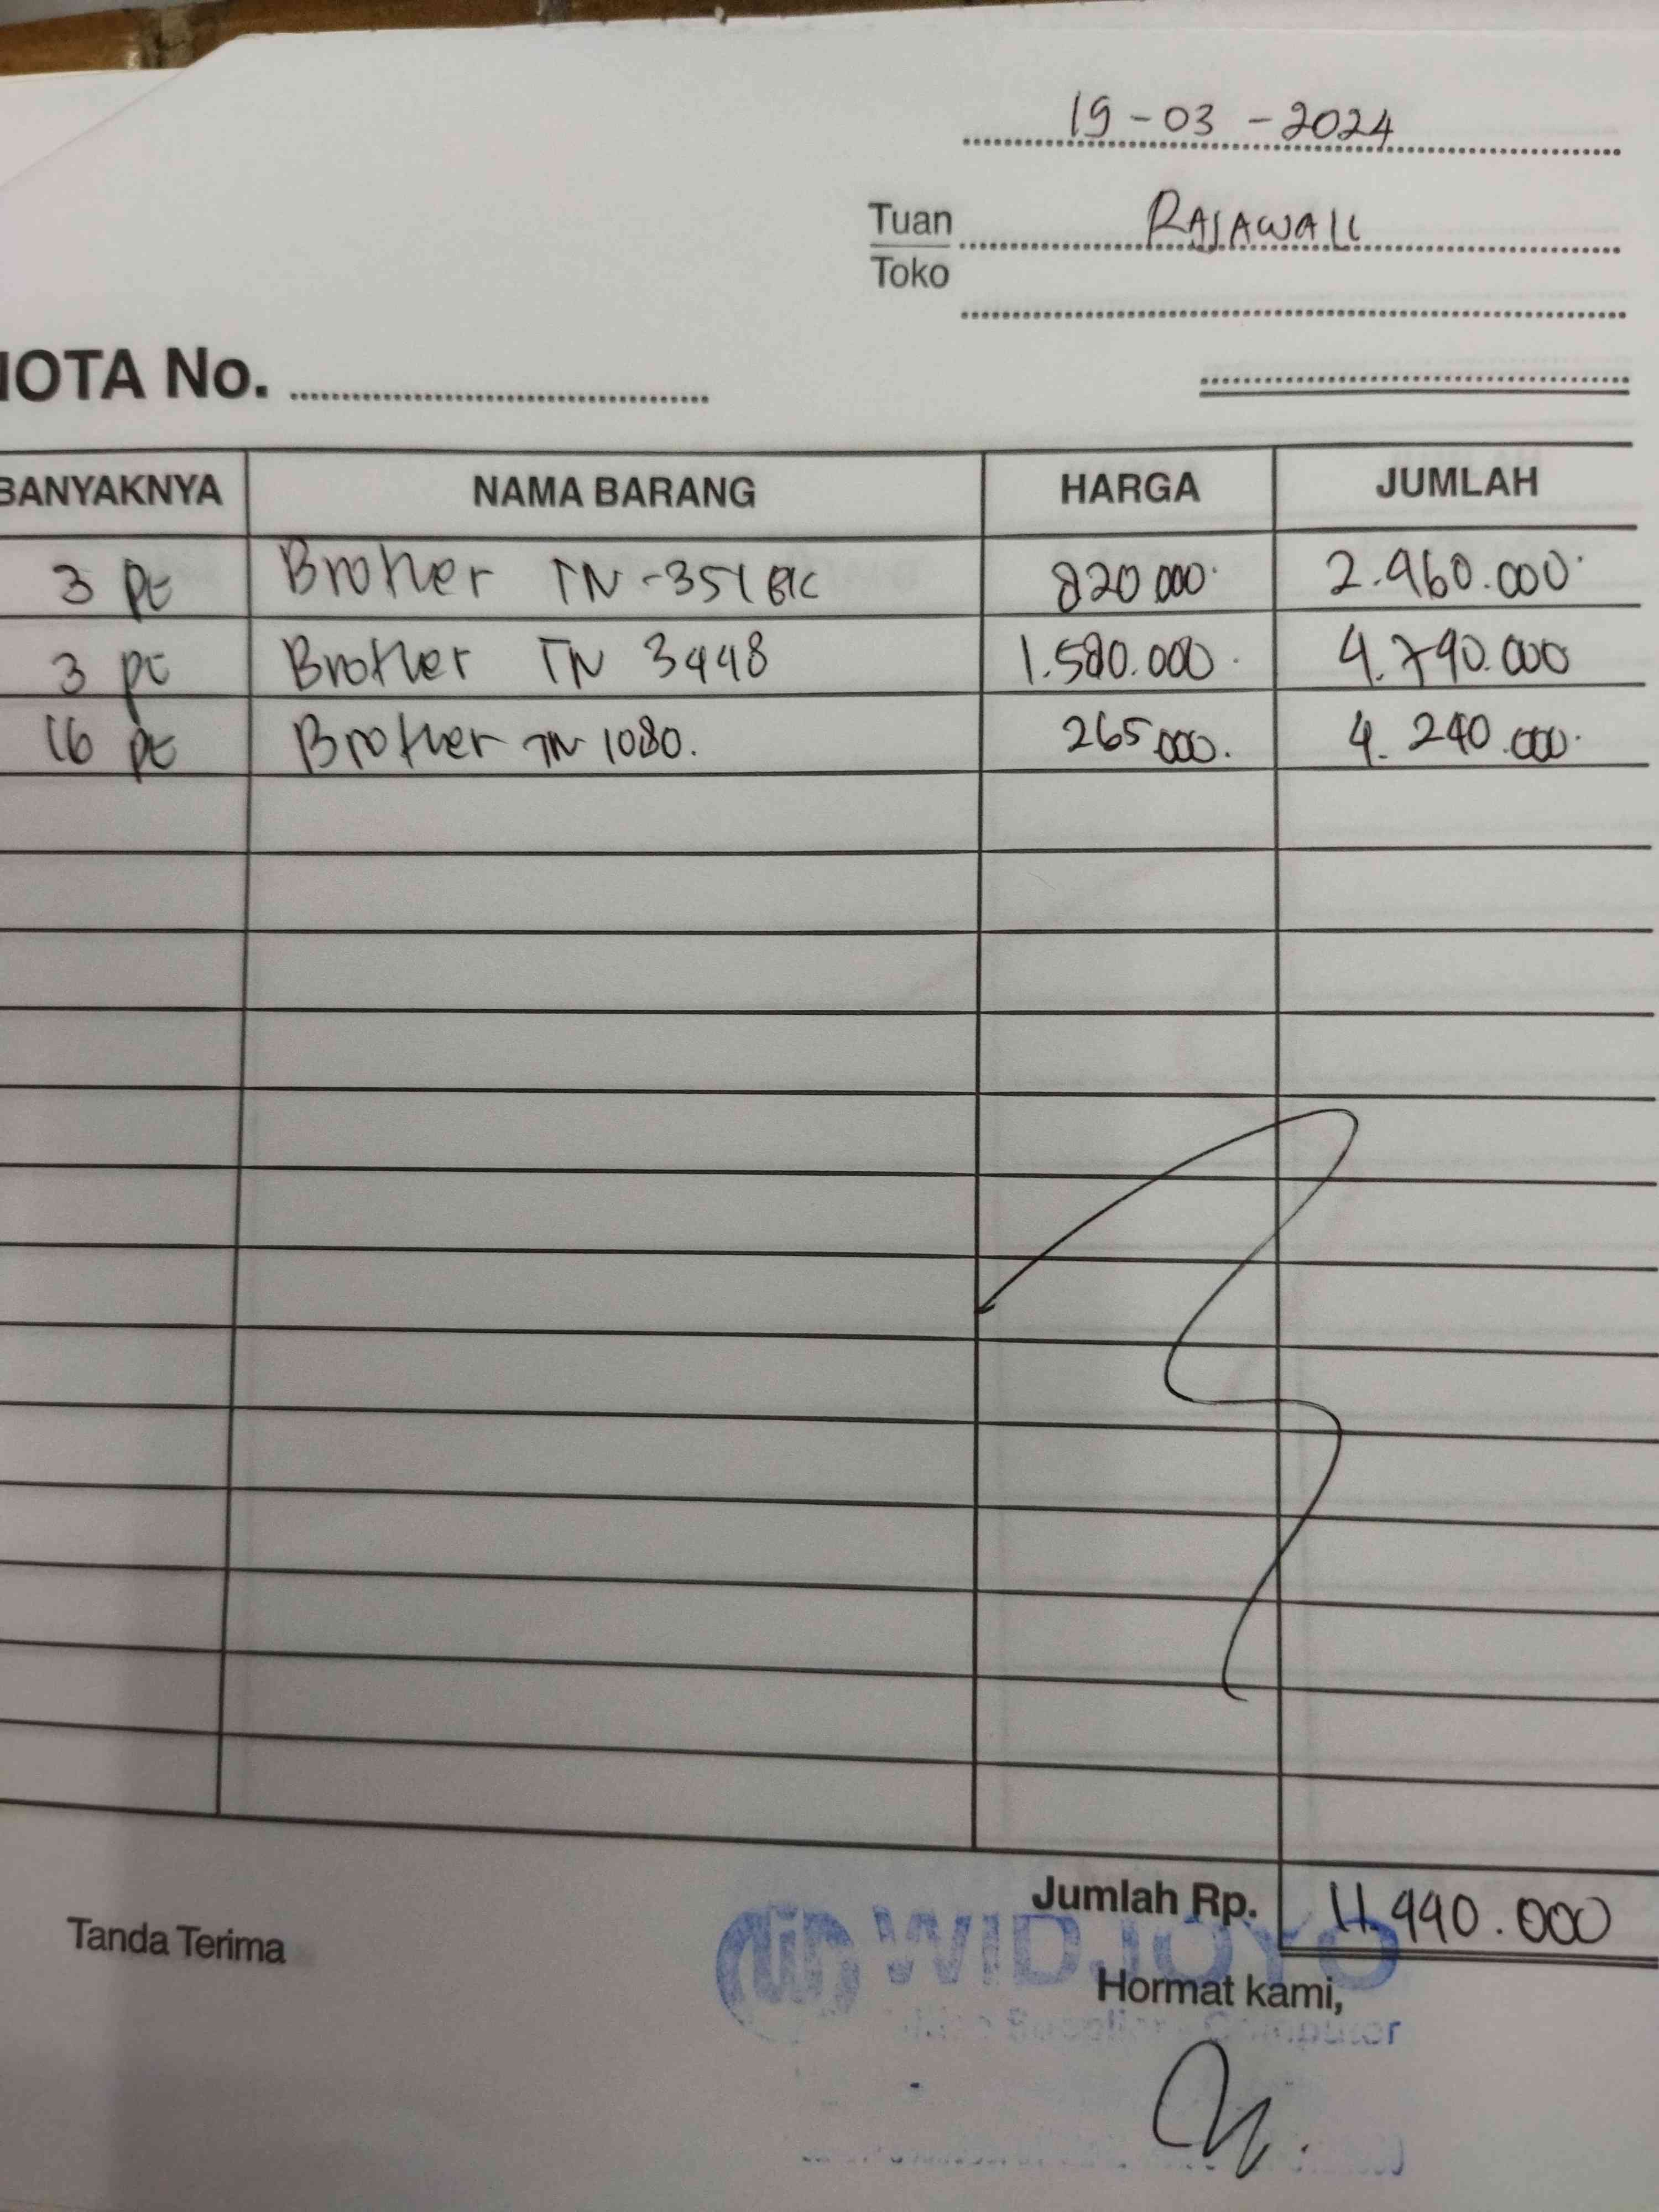 19-03-2024
Tuan RAJAWALI
Toko
NOTA No.
BANYAKNYA NAMA BARANG HARGA JUMLAH
3 pc Brother TN-351 BK 820.000 2.460.000
3 pc Brother TN 3448 1.580.000 4.740.000
16 pc Brother TN 1080. 265.000. 4.240.000
Jumlah Rp. 11.440.000
Tanda Terima
WIDJOYO
Hormat kami,
Computer